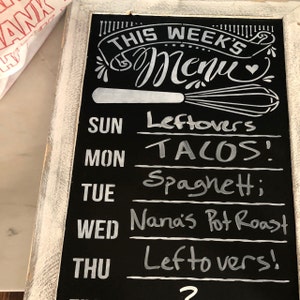 THIS WEEK'S
Menu
SUN Leftovers
MON TACOS!
TUE Spaghetti
WED Nana's Pot Roast
THU Leftovers!
?